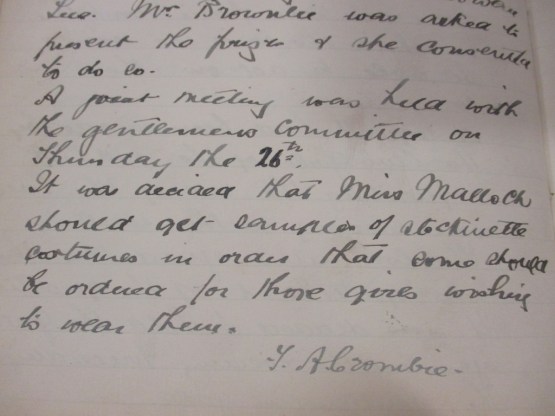 Mrs Brownlie was asked to
present the prizes & she consented
to do so.
A joint meeting was held with
the gentlemens committee on
Thursday the 26th.
It was decided that Miss Malloch
should get samples of stockinette
costumes in order that some should
be ordered for those girls wishing
to wear them.
Crombie-